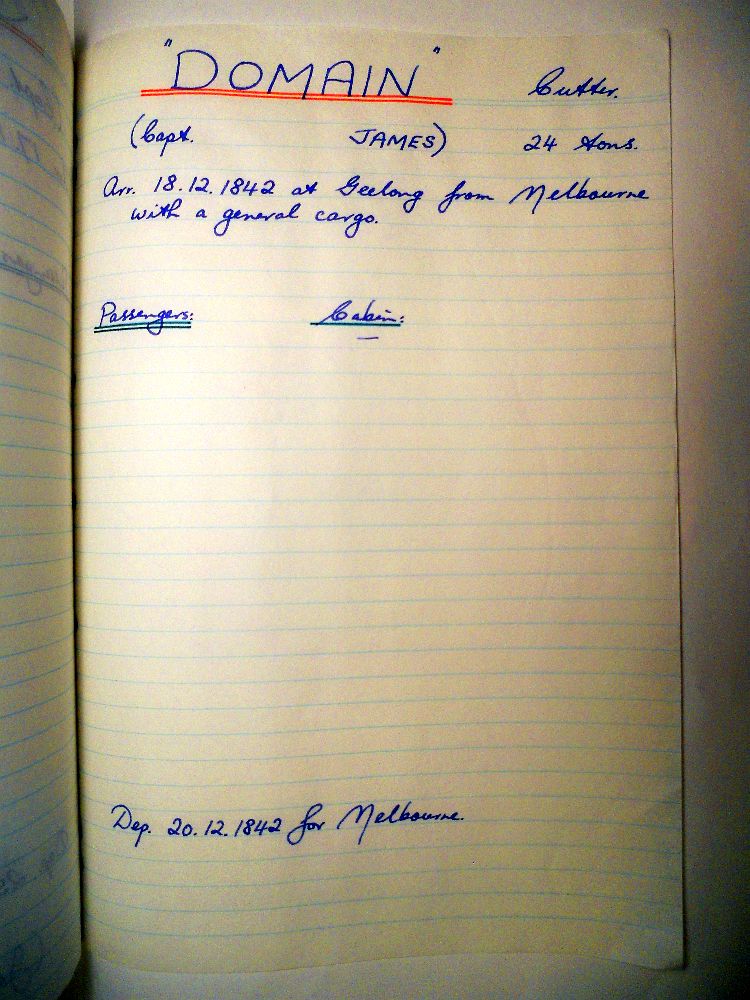 "DOMAIN" Cutter.
(Capt. JAMES) 24 tons.
Arr. 18.12.1842 at Geelong from Melbourne
with a general cargo.
Passengers: Cabin:
—
Dep. 20.12.1842 for Melbourne.